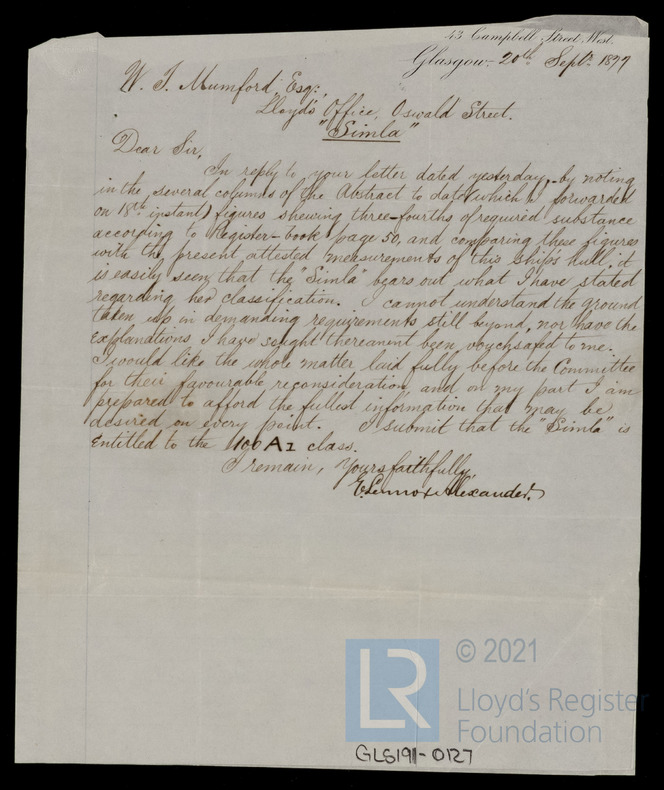 43 Campbell Street West.
Glasgow, 20th Septr. 1877
W. T. Mumford, Esq:,
Lloyd's Office, Oswald Street.
"Simla"
Dear Sir,
In reply to your letter dated yesterday, by noting
in the several columns of the Abstract to date (which I forwarded
on 18th instant) figures shewing three-fourths of required substance
according to Register-book page 50, and comparing these figures
with the present attested measurements of this Ship's hull, it
is easily seen that the "Simla" bears out what I have stated
regarding her classification. I cannot understand the ground
taken up in demanding requirements still beyond, nor have the
explanations I have sought thereanent been vouchsafed to me.
I would like the whole matter laid fully before the Committee
for their favourable reconsideration, and on my part I am
prepared to afford the fullest information that may be
desired on every point. I submit that the "Simla" is
entitled to the 100 A1 class.
I remain, Yours faithfully,
E. Lennox Alexander.
© 2021
LR
Lloyd's Register
Foundation
GLS191-0127